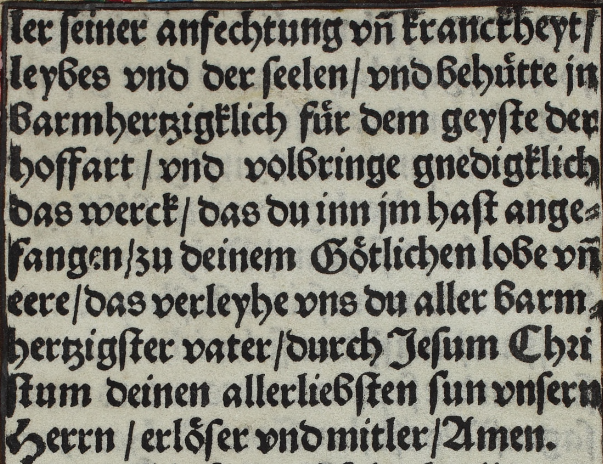 ler seiner anfechtung vñ kranckheyt/
leybes vnd der seelen/ vnd behuͤtte jn
barmhertzigklich fuͤr dem geyste der
hoffart / vnd volbringe gnedigklich
das werck/ das du inn jm hast ange⸗
fangen/zu deinem Goͤtlichen lobe vñ
eere/das verleyhe vns du aller barm⸗
hertzigster vater/durch Jesum Chri
stum deinen allerliebsten sun vnsern
Herrn / erloͤser vnd mitler/Amen.